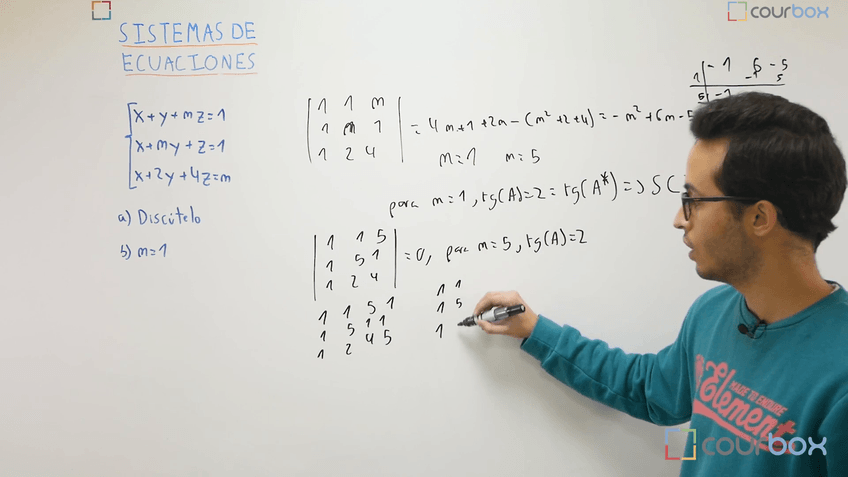 SISTEMAS DE
ECUACIONES
x+y+mz=1
x+my+z=1
x+2y+4z=m
a) Discútelo
b) m=1
1 1 m
1 m 1
1 2 4
= 4m+1+2m-(m²+2+4)=-m²+6m-5
m=1 m=5
-1 6 -5
1 5
5 -1
para m=1, rg(A)=2=rg(A*)=> SC
1 1 5
1 5 1
1 2 4
=0, para m=5, rg(A)=2
1 1 5 1
1 5 1 1
1 2 4 5
1 1
1 5
1
courbox
MADE TO ENDURE
Element
courbox